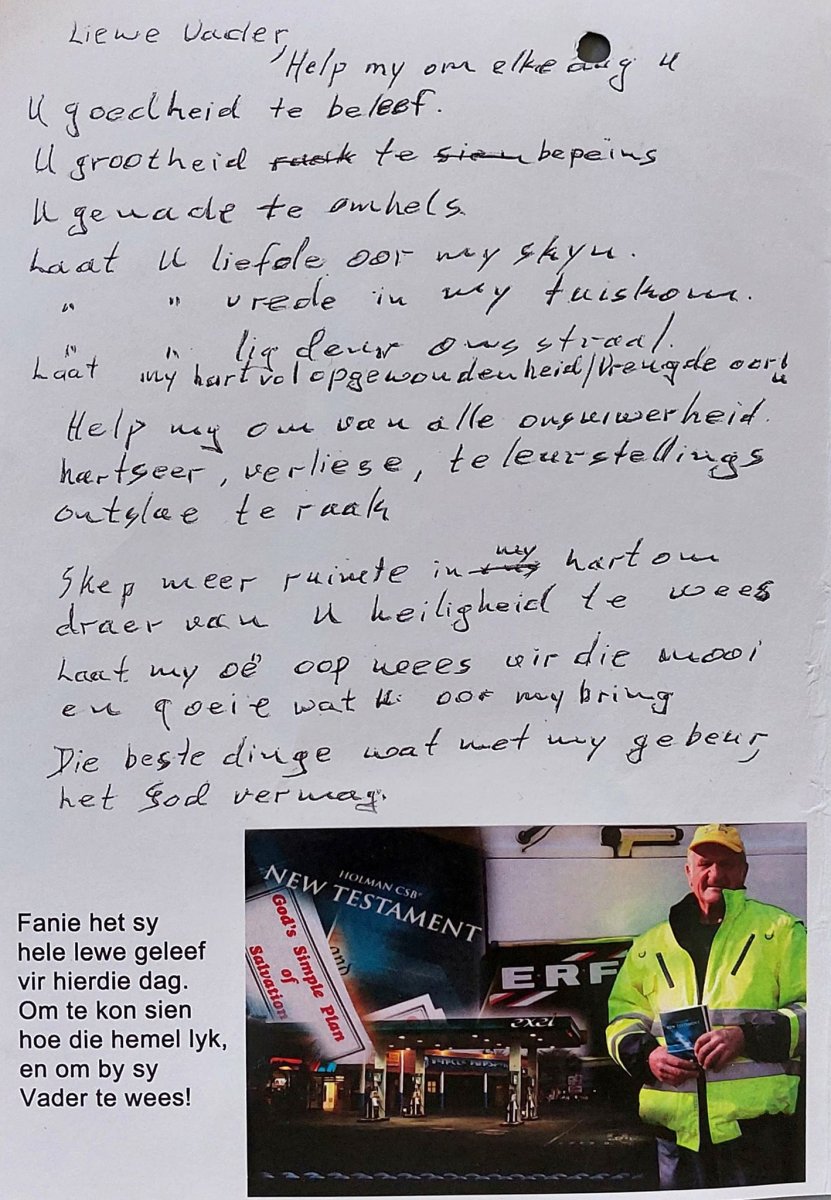 Liewe Vader,
Help my om elke dag U
U goedheid te beleef.
U grootheid te sien bepeins
U genade te omhels
Laat U liefde oor my skyn.
" " vrede in my tuiskom.
" " lig deur ons straal.
Laat my hart vol opgewondenheid/Vreugde oor U
Help my om van alle onsuiwerheid.
hartseer, verliese, teleurstellings
ontslae te raak
Skep meer ruimte in my hart om
draer van U heiligheid te wees
Laat my oë oop wees vir die mooi
en goeie wat U oor my bring
Die beste dinge wat met my gebeur,
het God vermag.
HOLMAN CSB®
NEW TESTAMENT
God's Simple Plan
of
Salvation
and
ERF
excel
Fanie het sy
hele lewe geleef
vir hierdie dag.
Om te kon sien
hoe die hemel lyk,
en om by sy
Vader te wees!
NEW TESTAMENT